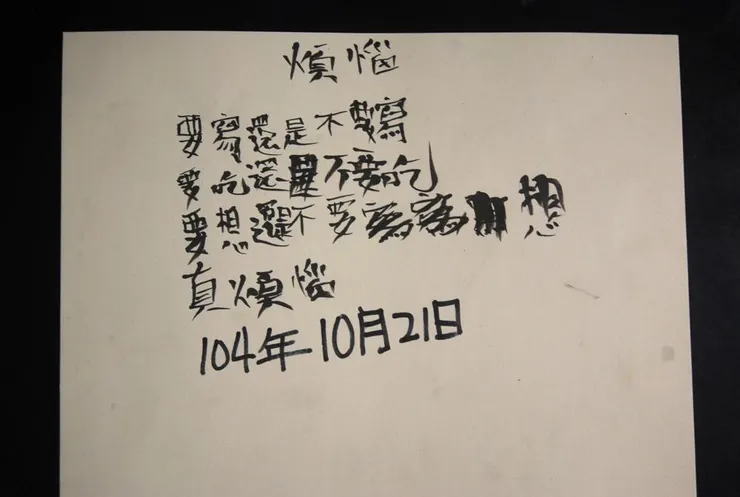 煩惱
要寫還是不要寫
要吃還是不要吃
要想還是不要想
真煩惱
104年10月21日